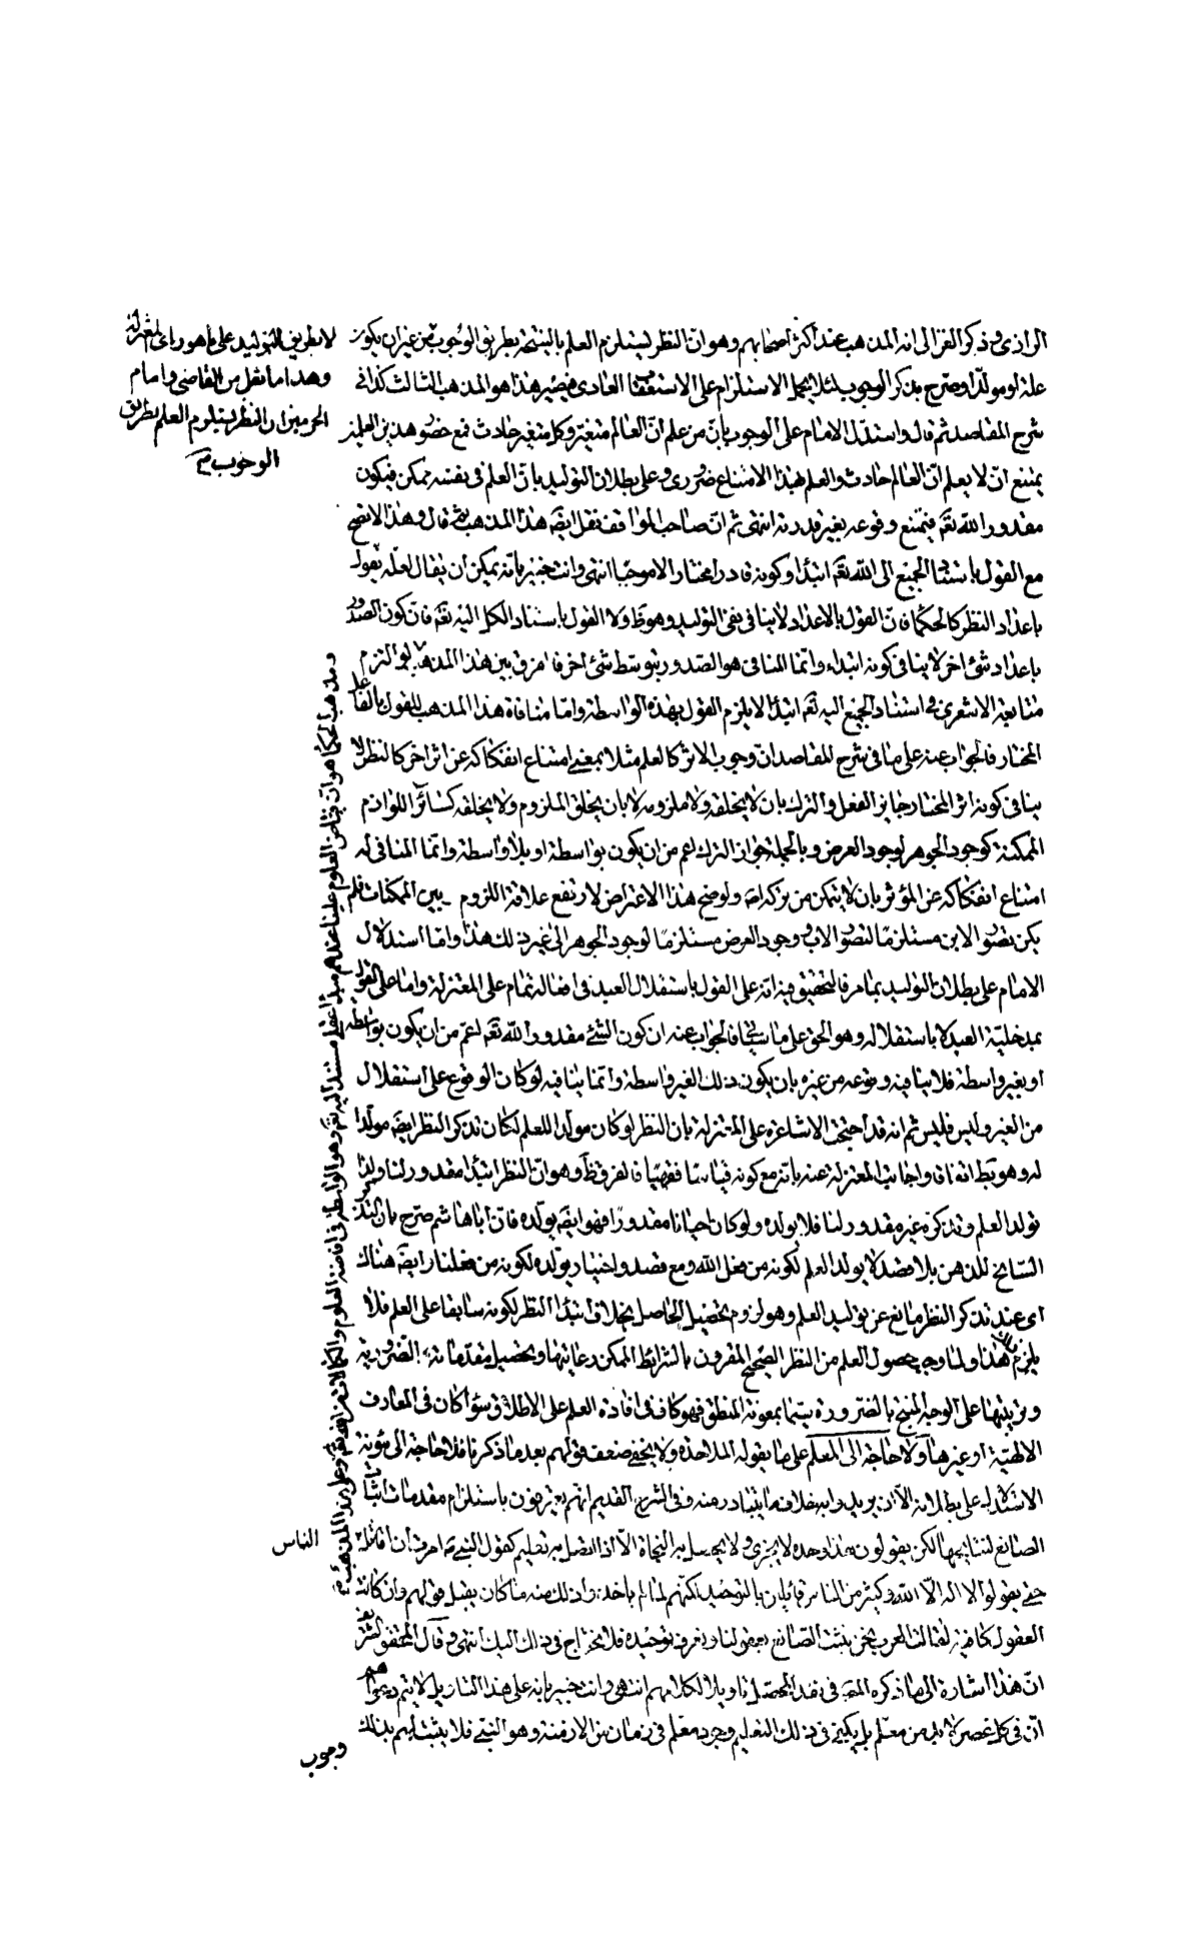 الرازى وذكر الغزالى انه المذهب عند اكثر اصحابهم وهو انّ النظر يستلزم العلم بالنتيجة بطريق الوجوب من غير ان يكون
علة او مولّدا وصرح بذكر الوجوب لئلا يحمل الاستلزام على الاستعقاب العادى فيصير هذا هو المذهب الثالث كذا فى
شرح المقاصد ثم قال واستدلّ الامام على الوجوب بانّ من علم انّ العالم متغيّر وكل متغير حادث فمع حضور هذين العلمين
يمتنع ان لا يعلم انّ العالم حادث والعلم بهذا الامتناع ضرورى وعلى بطلان التوليد بانّ العلم فى نفسه ممكن فيكون
مقدور الله تعم فيمتنع وقوعه بغير قدرته انتهى ثم انّ صاحب المواقف نقل ايضه هذا المذهب ثم قال وهذا لا يصح
مع القول باستناد الجميع الى الله تعم ابتداء وكونه قادرا مختارا لا موجبا انتهى وانت خبير بانّه يمكن ان يقال لعلّه يقول
باعداد النظر كالحكماء فانّ القول بالاعداد لا ينافى نفى التوليد وهو ظ ولا القول باستناد الكل اليه تعم فان كون الصدور
باعداد شئ اخر لا ينافى كونه ابتداء وانما المنافى هو الصدور بتوسط شئ اخر فالفرق بين هذا المذهب لو التزم
متابعة الاشعرى فى استناد الجميع اليه تعم ابتداء لا يلزم القول بهذه الواسطة وامّا منافاة هذا المذهب للقول بالفاعل
المختار فالجواب عنه على ما فى شرح المقاصد انّ وجوب الاثر كالعلم مثلا بمعنى امتناع انفكاكه عن اثر اخر كالنظر لا
ينافى كونه اثر المختار جايز الفعل والترك بان لا يخلقه ولا ملزومه لا بان يخلق الملزوم ولا يخلقه كسائر اللوازم
الممكنة كوجود الجوهر لوجود العرض وبالجملة جواز الترك اعم من ان يكون بواسطة او بلا واسطة وانّما المنافى له
امتناع انفكاكه عن المؤثر بان لا يتمكن من تركه اصه ولو صح هذا الاعتراض لارتفع علاقة اللزوم بين الممكنات فلم
يكن تصوّر الابن مستلزمًا لتصوّر الاب ووجود العرض مستلزمًا لوجود الجوهر الى غير ذلك هذا وامّا استدلال
الامام على بطلان التوليد بما مر فالتحقيق فيه انّه على القول باستقلال العبد فى افعاله تمام على المعتزلة واما على القول
بمدخليّة العبد لا باستقلاله وهو الحق على ما سيأتى فالجواب عنه ان كون الشئ مقدور الله تعم اعمّ من ان يكون بواسطة
او بغير واسطة فلا ينافيه وقوعه من غيره بان يكون ذلك الغير واسطة وانّما ينافيه لو كان الوقوع على استقلال
من الغير وليس فليس ثم انه قد احتجّت الاشاعره على المعتزلة بان النظر لو كان مولّدا للعلم لكان تذكر النظر ايضه مولّدا
له وهو بط اتفاقا واجابت المعتزلة عنه بانّه مع كونه قياسا فقهيّا فالفرق ظ وهو انّ النظر ابتداء مقدور لنا ولذا
تولد العلم وتذكره غير مقدور لنا فلا يولده ولو كان احيانا مقدورًا فهو ايضه يولّده فانّ اباهاشم صرح بان التذكر
السانح للذهن بلا قصد لا يولد العلم لكونه من فعل الله ومع قصد واختيار يولّده لكونه من فعلنا وايضه هناك
اى عند تذكر النظر مانع عن توليد العلم وهو لزوم تحصيل الحاصل بخلاف ابتداء النظر لكونه سابقا على العلم فلا
يلزم ذلك هذا ولما وجب حصول العلم من النظر الصّحيح المقرون بالشرايط الممكن رعايتها وتحصيل مقدماته الضّروريّة
وترتيبها على الوجه المنتج بالضرورة سيّما بمعونة المنطق فهو كاف فى افادة العلم على الاطلاق سواء كان فى المعارف
الالهيّة او غيرها ولا حاجة الى المعلم على ما يقوله الملاحدة ولا يخفى ضعف قولهم بعد ما ذكرنا فلا حاجة الى مؤنة
الاستدلال على بطلانه الّا ان يريدوا به خلاف ما يتبادر منه وفى الشرح القديم انّهم يعترفون باستلزام مقدمات اثبات
الصّانع لنتايجها لكن يقولون هذا وحده لا يجزى ولا يحصل به النجاة الّا اذا اتصل به تعليم كقول النبى ص امرت ان اقاتل
حتى يقولوا لا اله الا الله وكثير من الناس قايلون بالتوحيد لكنهم لمّا لم ياخذوا ذلك منه ما كان يقبل قولهم وان كانت
العقول كافية لقالت العرب نحن نثبت الصّانع بعقولنا ونعرف توحيده فلا نحتاج فى ذلك اليك انتهى وقال المحقق الشريف
انّ هذا اشارة الى ما ذكره المصه فى نقد المحصّل تاويلا لكلامهم انتهى وانت خبير بانه على هذا التاويل لا يتم دعواهم
انّ فى كل عصر لا بد من معلّم بل يكفى فى ذلك التعليم وجود معلم فى زمان من الازمنة وهو النبى فلا يثبت لهم بذلك
وجوب
لا بطريق التوليد على ما هو راى المعتزلة
وهذا ما نقل من القاضى وامام
الحرمين ان النظر يستلزم العلم بطريق
الوجوب
ومذهب الحكماء هو انّ فيضان العلوم علينا عندهم مبدء عقلى مستند اليه تعم وهو الواسطة فى افاضة العلوم والكمالات
الناس